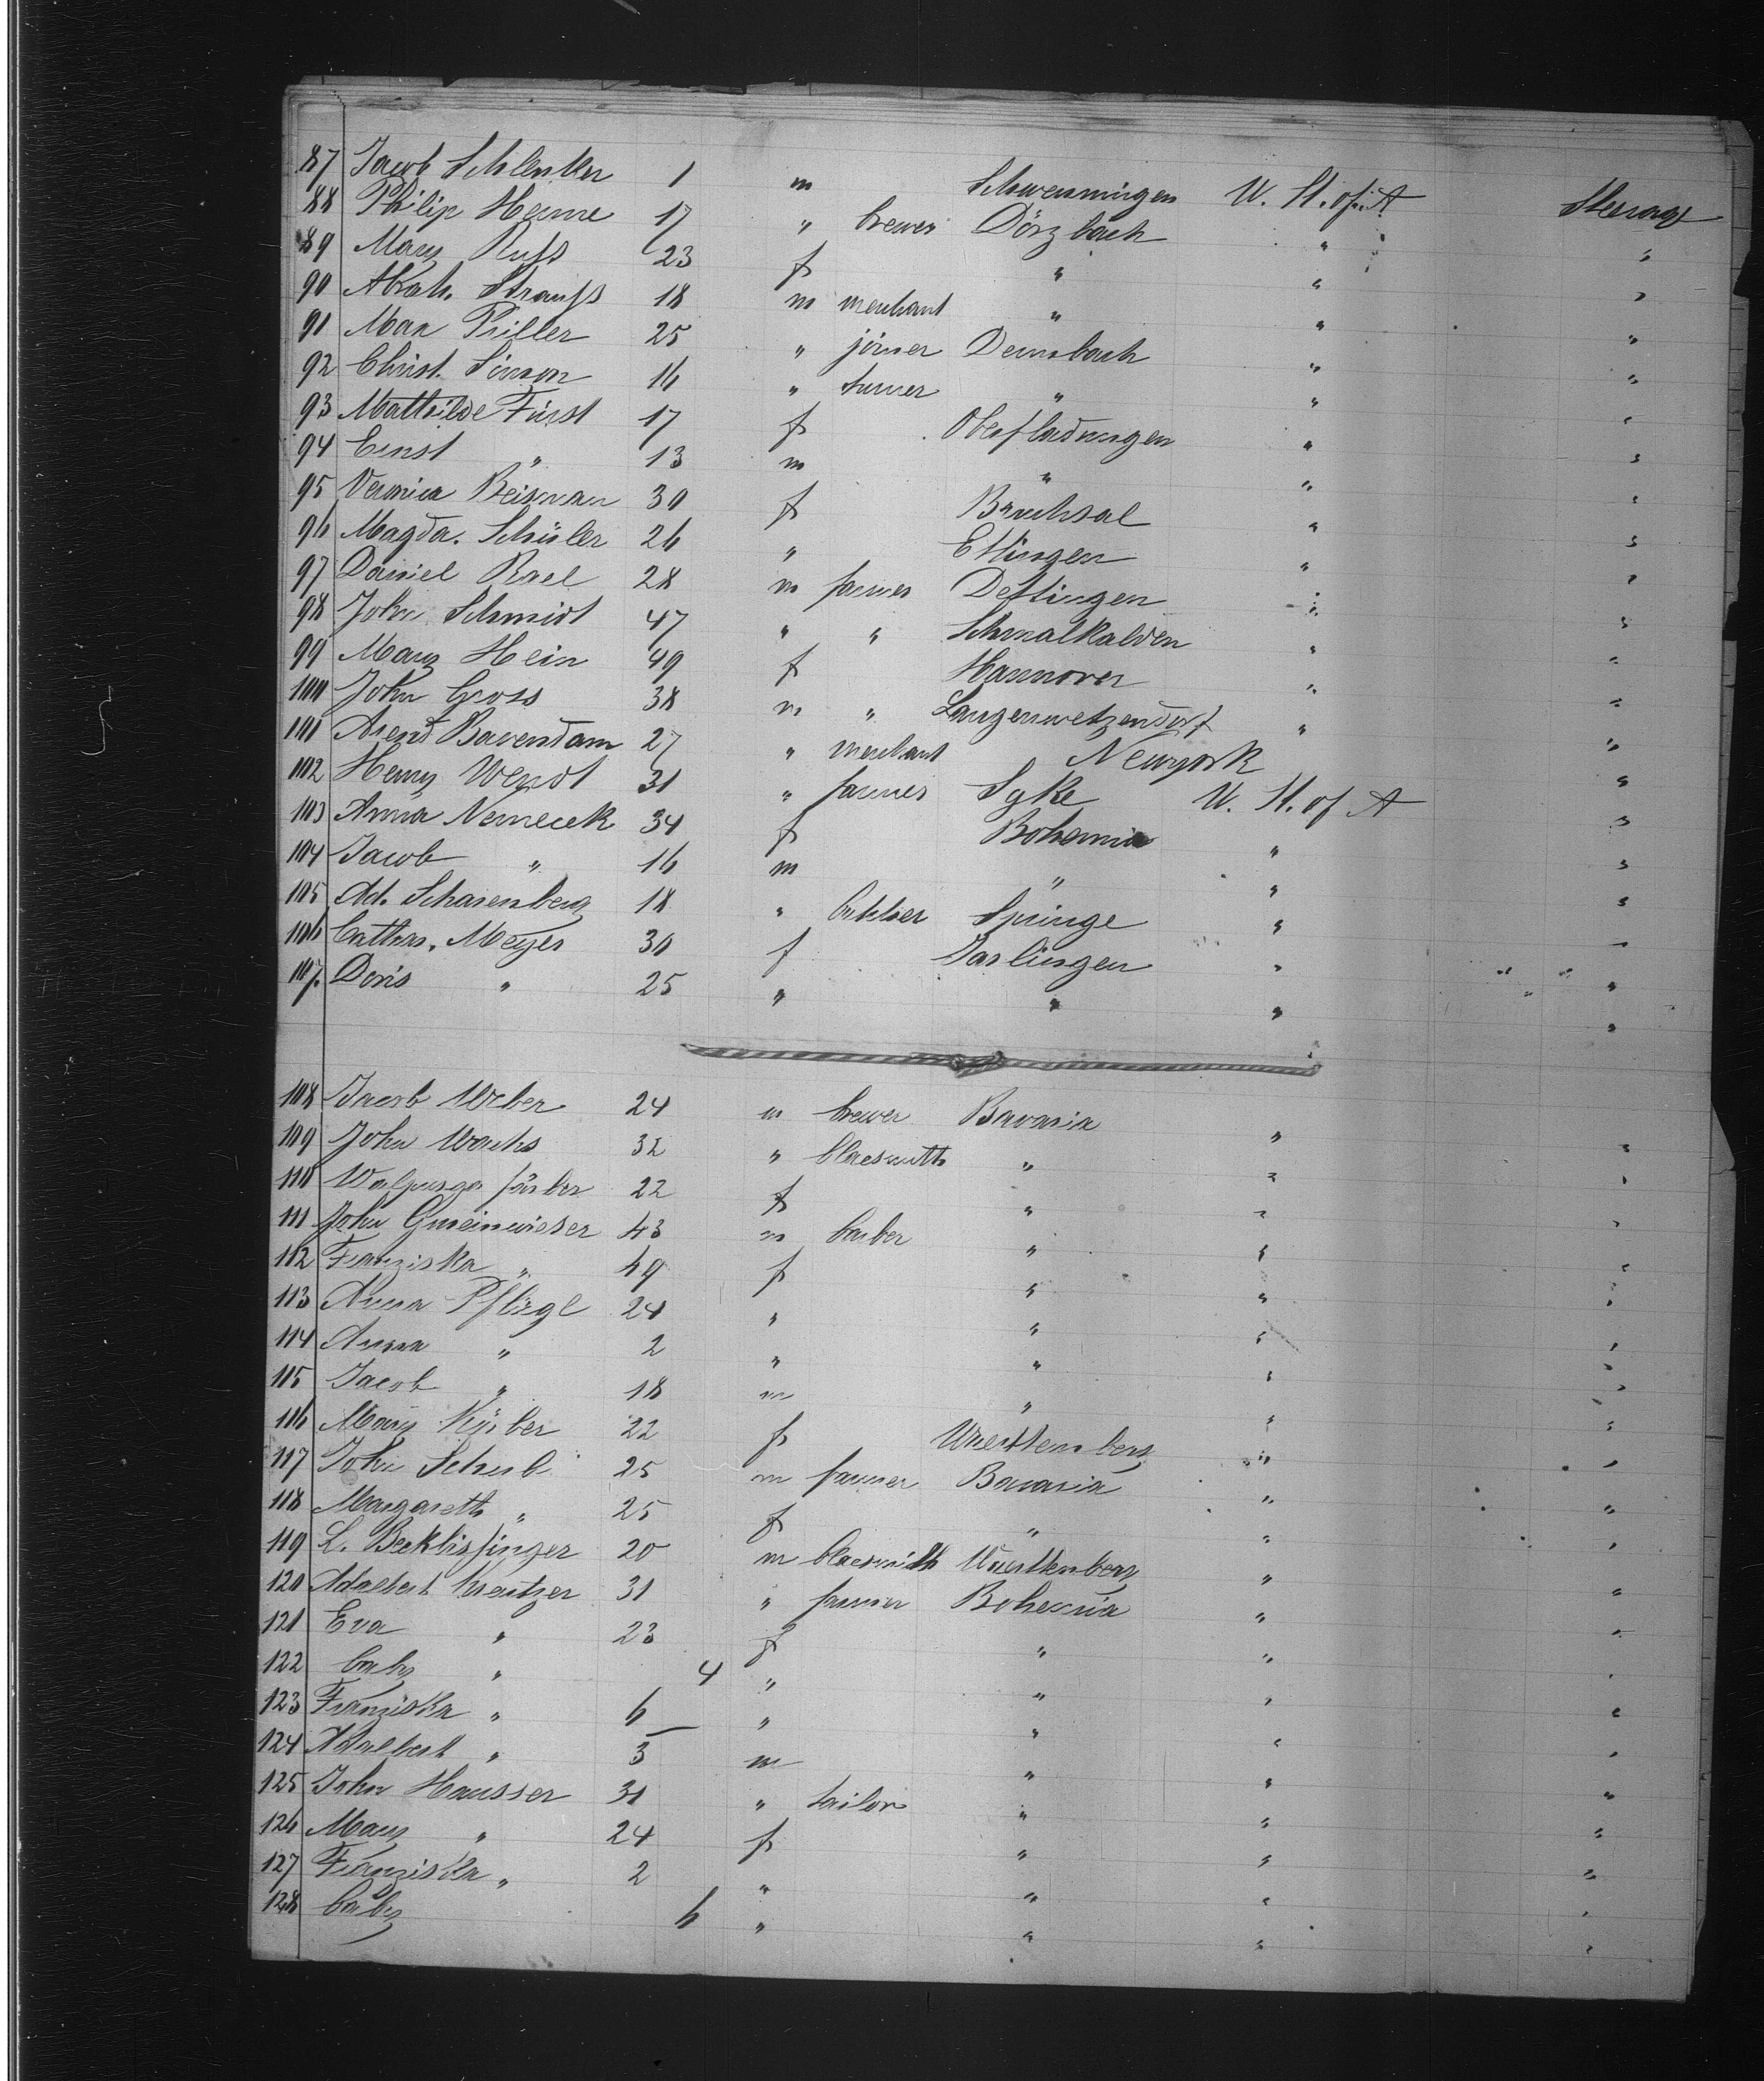 87 Jacob Schlenker 1 m Schwenningen U. St. of A Steerage
88 Philip Henne 17 " brewer Dörzbach " "
89 Mary Ruff 23 f " " "
90 Abrah. Strauss 18 m merchant " " "
91 Max Priller 25 " joiner Dennbach " "
92 Christ. Simon 16 " turner " " "
93 Mathilde Fürst 17 f Oberfladungen " "
94 Ernst " 13 m " " "
95 Veronica Beisman 30 f Bruchsal " "
96 Magda. Schüler 26 " Ettingen " "
97 Daniel Rael 28 m farmer Dettingen " "
98 John Schmidt 47 " " Schmalkalden " "
99 Mary Hein 49 f Hannover " "
100 John Gross 38 m " Langenwetzendorf " "
101 Arend Bavendam 27 " merchant Newyork "
102 Henry Wendt 31 " farmer Syke U. St. of A "
103 Anna Nemecek 34 f Bohemia " "
104 Jacob " 16 m " " "
105 Ad. Scharenberg 18 " butcher Springe " "
106 Cathar. Meyer 30 f Jarlingen " "
107. Doris " 25 " " " "
108 Jacob Weber 24 m brewer Bavaria " "
109 John Wachs 32 " blacsmith " " "
110 Walpurga Färber 22 f " " "
111 John Gmeinwieser 43 m barber " " "
112 Franziska " 49 f " " "
113 Anna Pfliegl 24 " " " "
114 Anna " 2 " " " "
115 Jacob " 18 m " " "
116 Mary Kürber 22 f Wuerttemberg " "
117 John Schub 25 m farmer Bavaria " "
118 Margareth " 25 f " " "
119 L. Becklisfinger 20 m blacsmith Wuerttemberg " "
120 Adalbert Kreutzer 31 " farmer Bohemia " "
121 Eva " 23 f " " "
122 baby " 4 " " " "
123 Franziska " 6 " " " "
124 Adalbert " 3 m " " "
125 John Hausser 31 " tailor " " "
126 Mary " 24 f " " "
127 Franziska " 2 " " " "
128 baby 6 " " " "